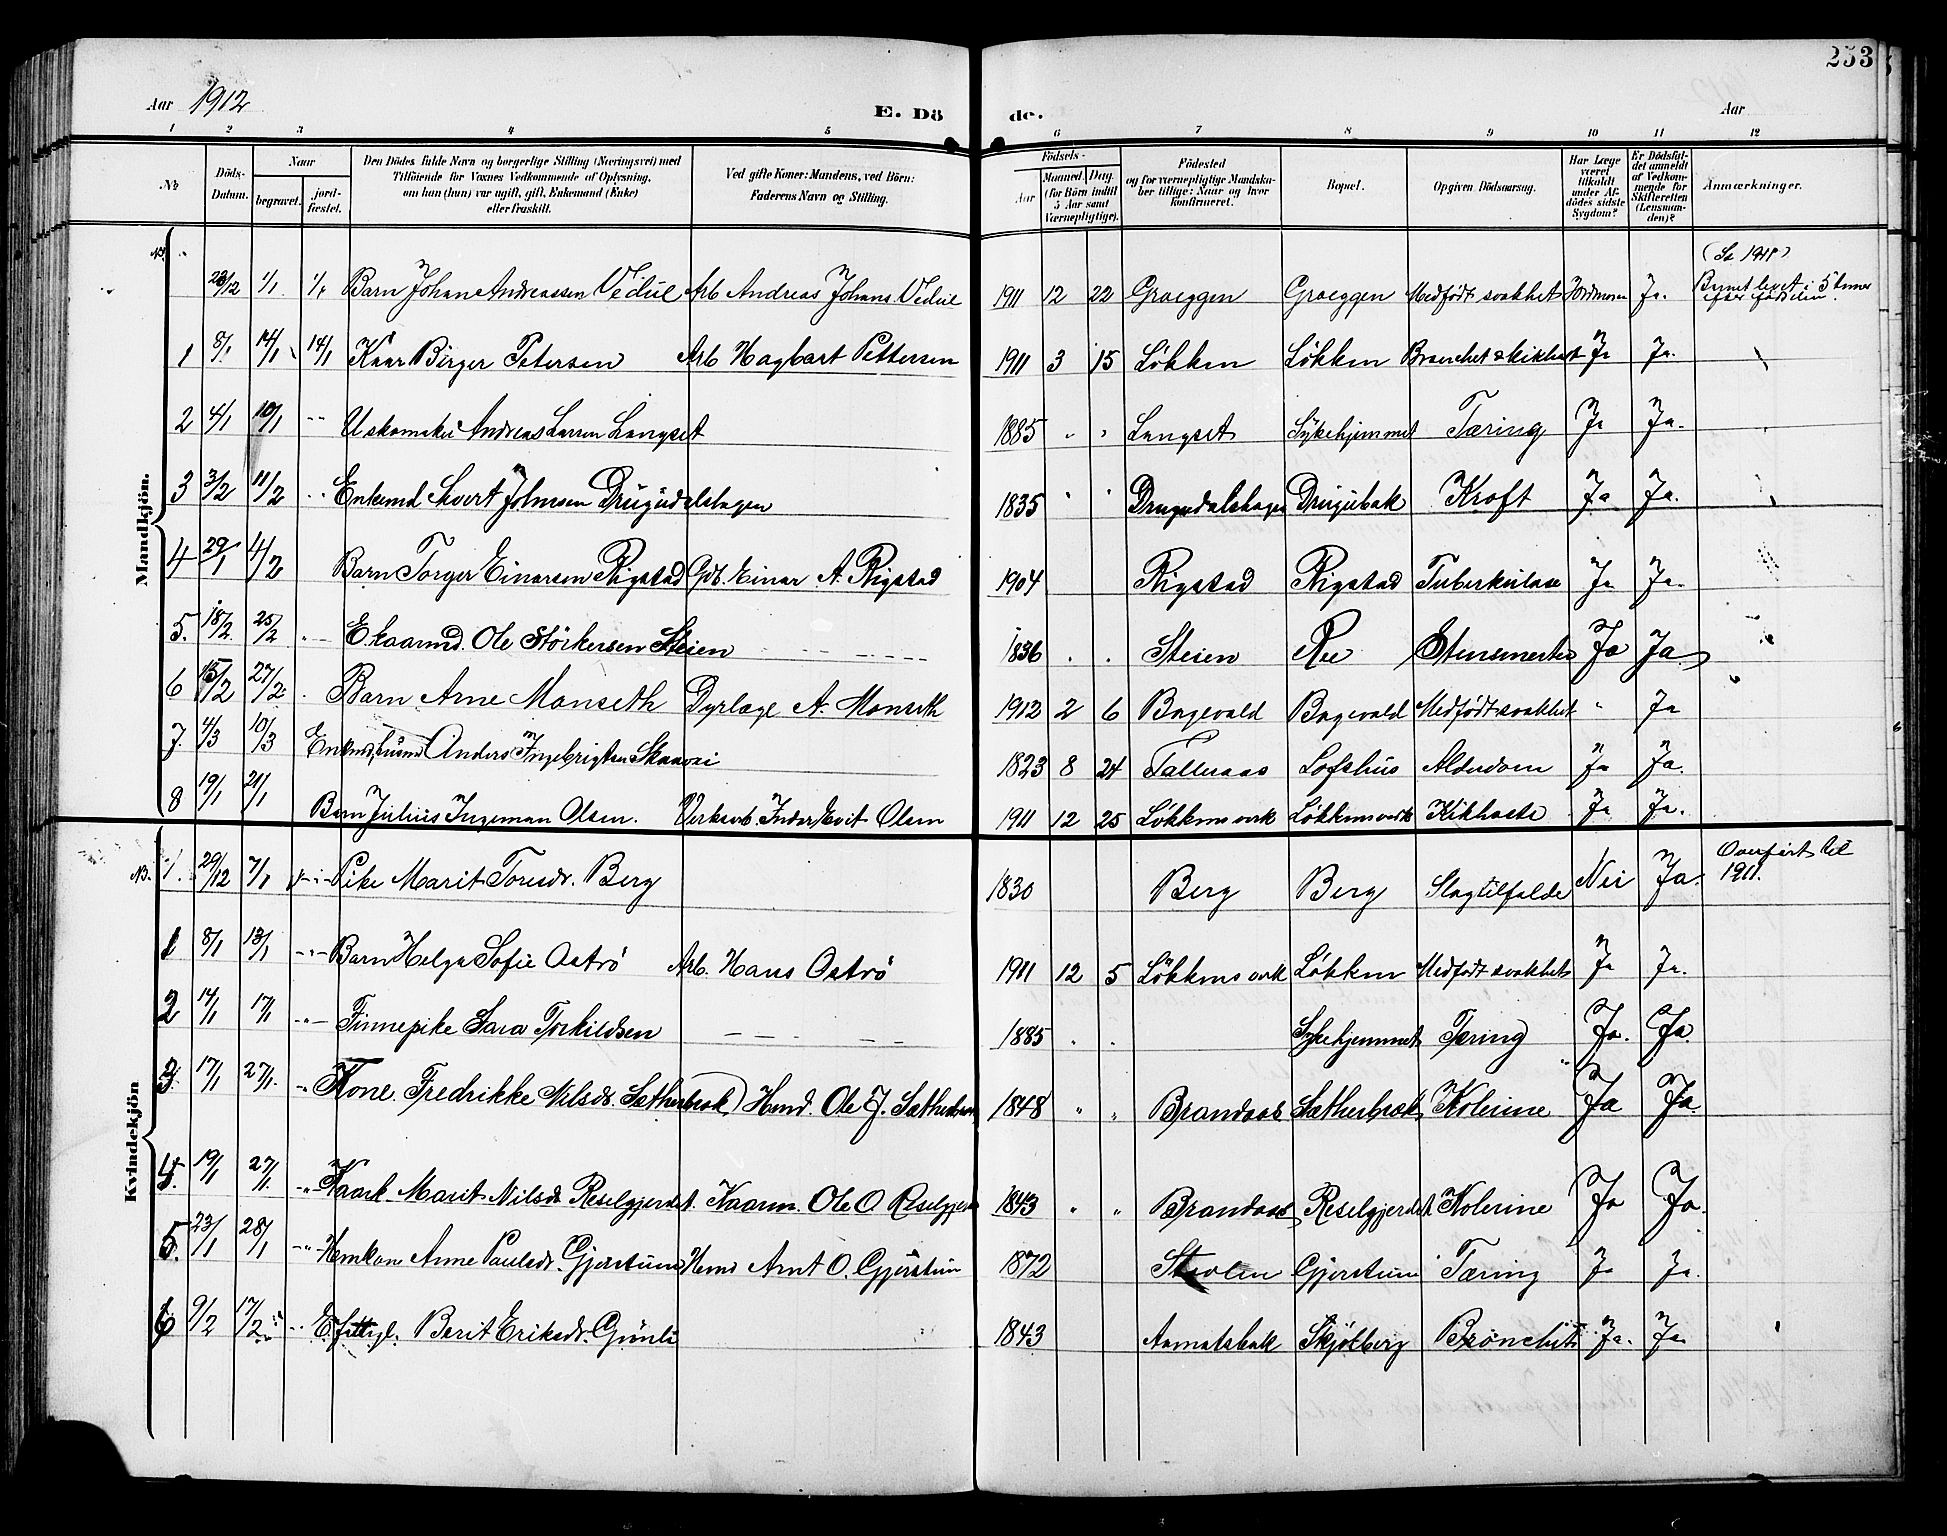 253
Aar 1912
E. Dö
de.
Aar
1 2 3 4 5 6 7 8 9 10 11 12
No
Döds-Datum.
Naar
begravet.
jord-fæstet.
Den Dödes fulde Navn og borgerlige Stilling (Næringsvei) med
Tilföiende for Voxnes Vedkommende af Oplysning,
om han (hun) var ugift, gift, Enkemand (Enke)
eller fraskilt.
Ved gifte Koner: Mandens, ved Börn:
Faderens Navn og Stilling.
Födsels-
Aar
Maaned. Dag.
(for Börn indtil
5 Aar samt
Værnepligtige).
Födested
og for værnepligtige Mandska-
ber tillige: Naar og hvor
konfirmeret.
Bopæl.
Opgiven Dödsaarsag.
Har Læge
været
tilkaldt
under Af-
dödes sidste
Sygdom?
Er Dödsfal-
det anmeldt
af Vedkom-
mende for
Skifteretten
(Lensman-
den)?
Anmærkninger.
Mandkjön.
NB. 28/12 1/1 1/1 Barn Johan Andreassen Vedul Arb Andreas Johans. Vedul 1911 12 22 Graeggen Graeggen Medfödt svakhet Jordmoren Ja. (Se 1911) Barnet levet i 5 timer efter födselen.
1 8/1 14/1 14/1 Kaar Birger Petersen Arb Hagbart Pettersen 1911 3 15 Løkken Løkken Bronchet & kikhost Ja Ja.
2 4/1 10/1 U skomaker Andreas Larsen Langset 1885 " " Langset Sykehjemmet Tæring Ja Ja.
3 3/2 11/2 Enkemd Sivert Johnsen Drugudalshagen 1835 " " Drugudalshagen Drugubak Kræft Ja Ja.
4 29/1 4/2 Barn Torger Einarsen Rigstad Gdb. Einar A. Rigstad 1904 Rigstad Rigstad Tuberkulose Ja Ja.
5. 18/2. 25/2 E kaarmd. Ole Störkersen Steien 1836 . . Steien Ree Stensmerter Ja Ja
6 15/2 27/2. Barn Arne Monseth Dyrlæge A. Monseth 1912 2 6 Bagevold Bagevold Medfödt svakhet " Ja
7. 4/3 10/3 Enkmd, husmd Anders Ingebrigtsen Skaavoi 1823 8 24 Talleraas Lofshus Alderdom Ja Ja.
8 19/1 21/1 Barn Julius Ingeman Olsen. Verksarb. Indar Evit Olsen 1911 12 25 Løkkens verk Løkkens verk Kikhoste Ja Ja.
Kvindekjön
NB. 1. 29/12 7/1 Pike Marit Toresdr. Berg 1830 Berg Berg Slagtilfælde Nei Ja. Overfört til 1911.
1 8/1 13/1 Barn Helga Sofie Oströ Arb. Hans Oströ 1911 12 5 Løkkens verk Løkken Medfödt svakhet Ja Ja.
2 14/1 17/1 Finnepike Sara Torkildsen 1885 " . Sykehjemmet Tæring Ja. Ja
3. 17/1 27/1. Kone. Fredrikke Nilsdr. Sætherbrak) Hmd. Ole J. Sætherbrak 1848 " " Brandaas Sætherbrak Kolerine Ja Ja.
4. 19/1 27/1. Kaark. Marit Nilsdr Reselgjerdet. Kaarm. Ole O. Reselgjerde 1843 " " Brandaas Reselgjerdet Kolerine Ja Ja.
5. 23/1 28/1 Hmkon Anne Paulsdr. Gjerstuen Hmd Arnt O. Gjerstuen 1872 Stavlen Gjerstuen Tæring Ja Ja.
6 9/2 17/2 E. fattigl. Berit Eriksdr. Grinli 1843 Aamotsbak Skjølberg Brönchit Ja. Ja.